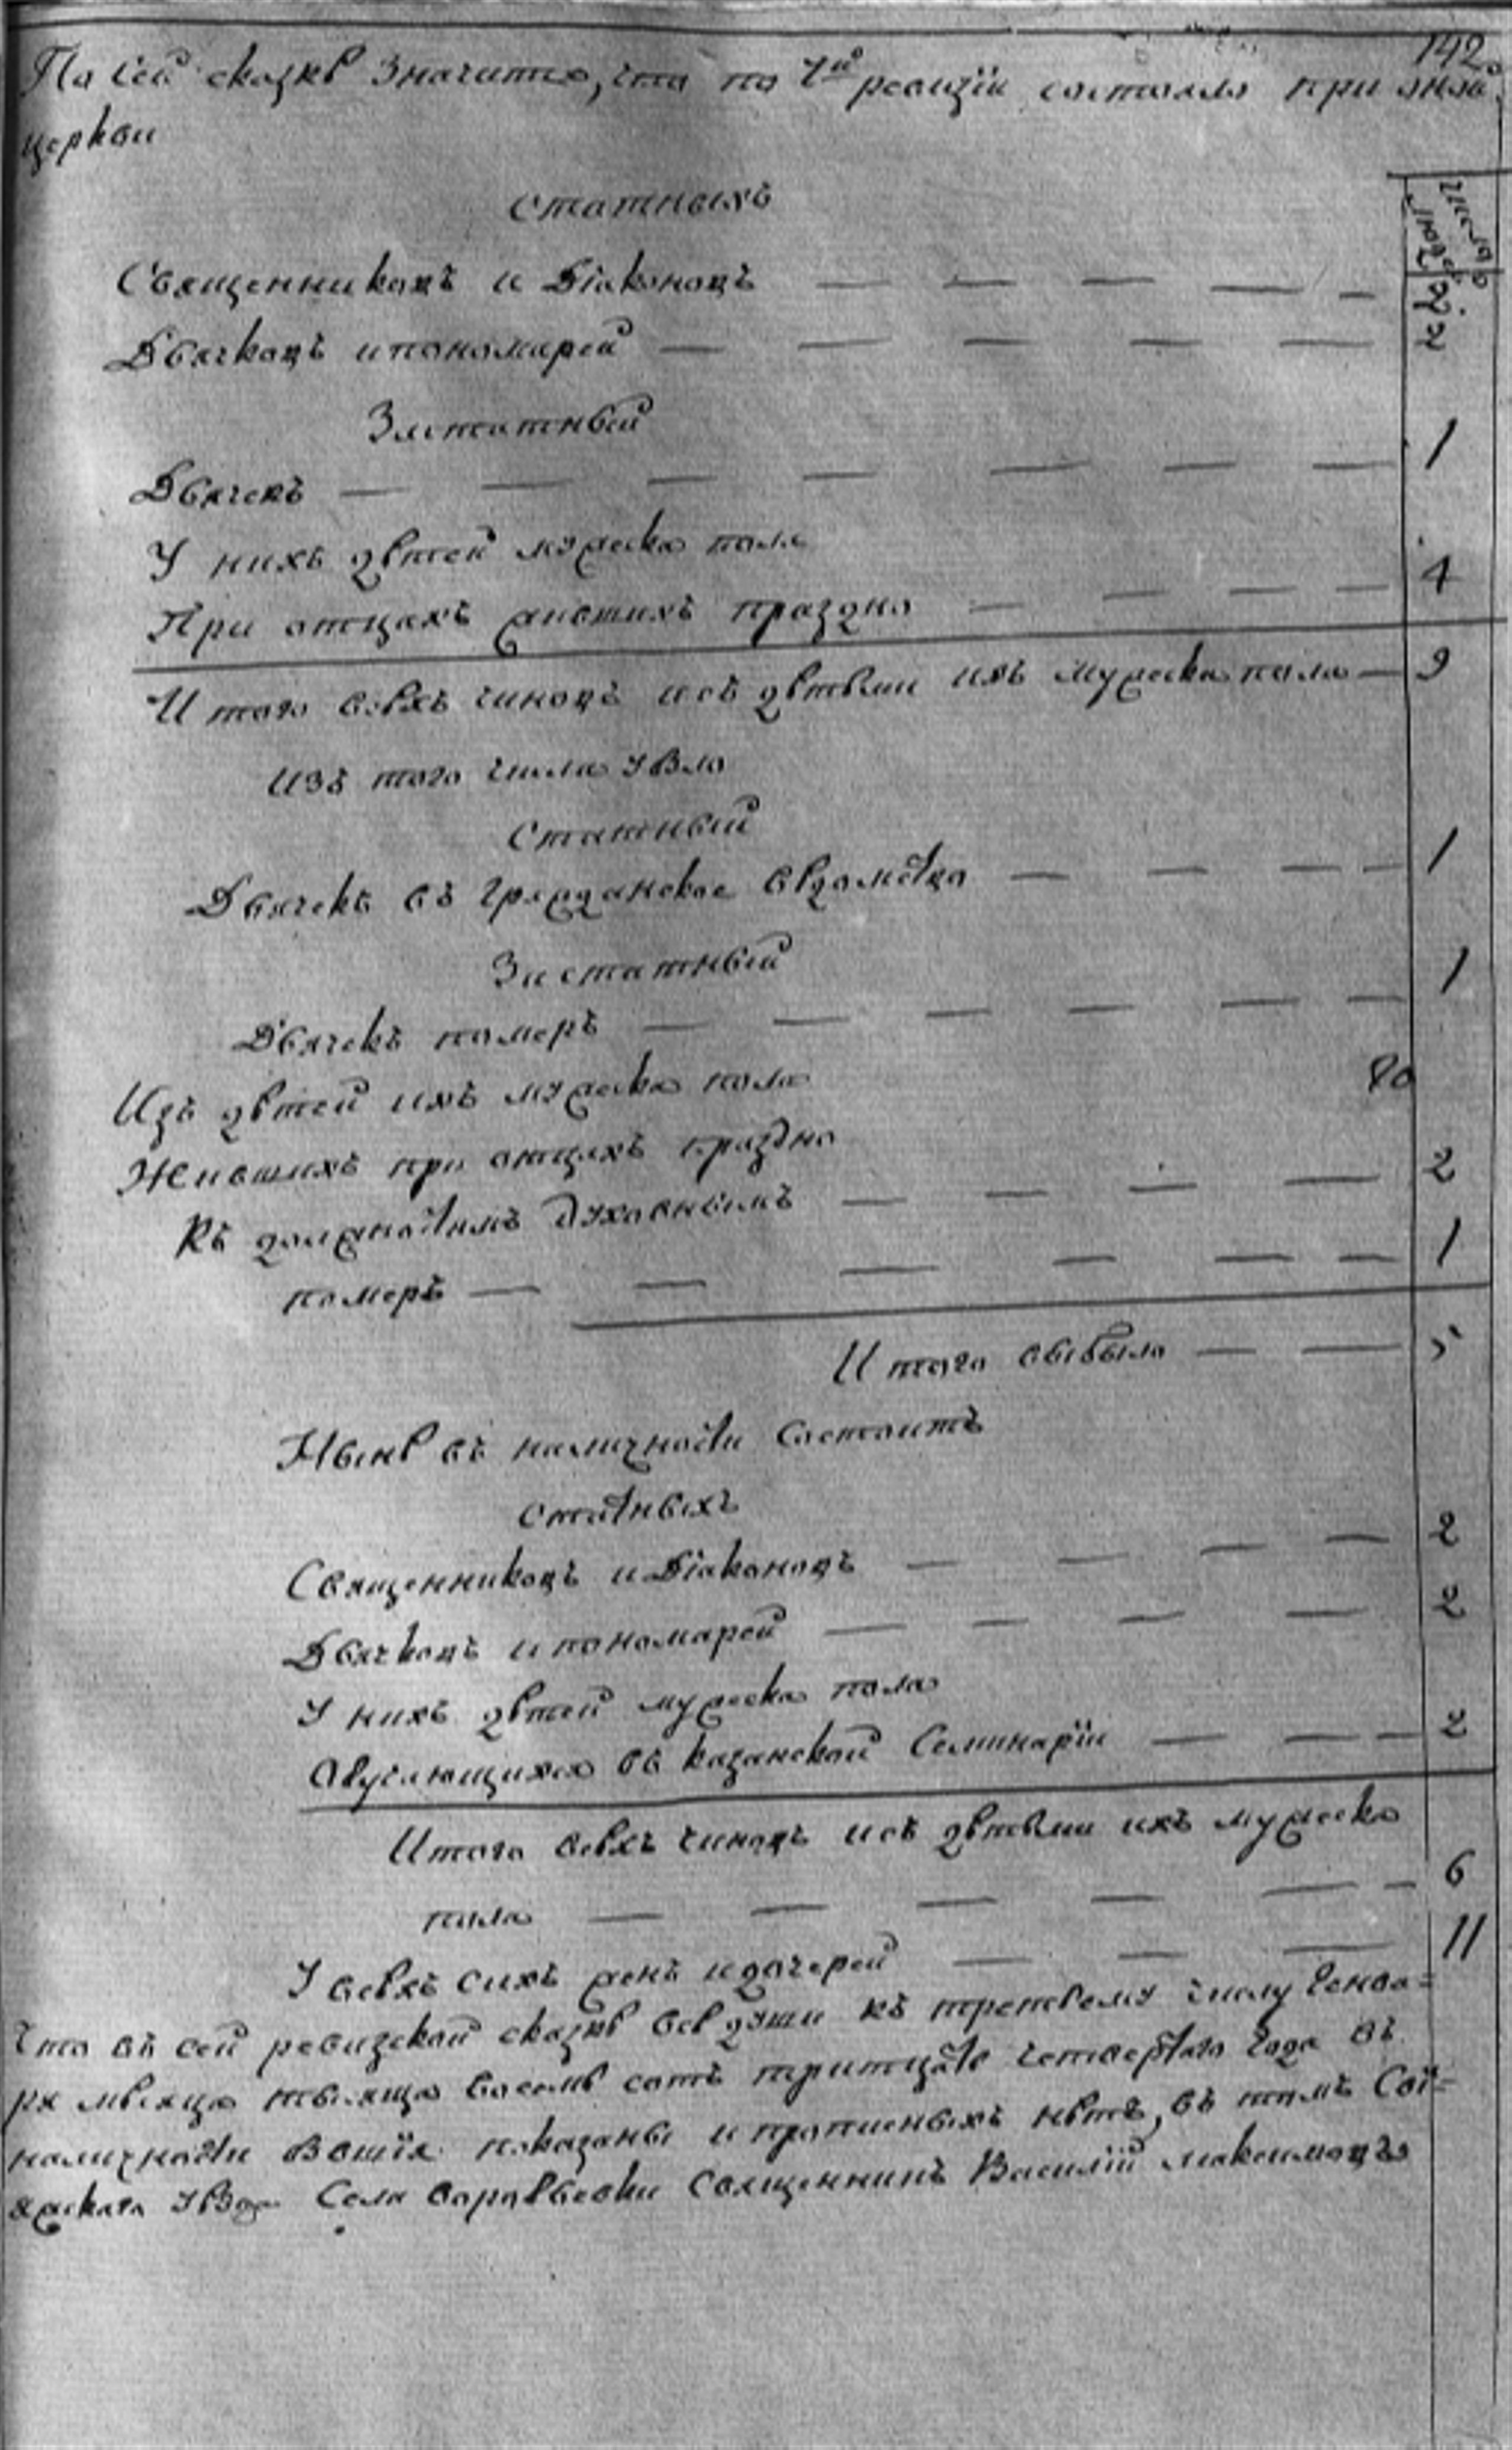 142.
По сей сказкѣ значится, что по 7й ревизіи состояло при оной
церкви
статныхъ
Число душъ
Священниковъ и Діаконовъ — — — — — 2
Дьячковъ и пономарей — — — — — 2
Заштатный
Дьячекъ — — — — — — — 1
У нихъ дѣтей мужеска пола
При отцахъ жившихъ праздно — — — — 4
Итого всѣхъ чиновъ и съ дѣтьми ихъ мужеска пола — 9
Изъ того числа убыло
Статный
Дьячекъ въ гражданское вѣдомство — — — — 1
Заштатный
Дьячекъ померъ — — — — — — 1
Изъ дѣтей ихъ мужеска пола
Жившихъ при отцахъ праздно
Къ должностямъ Духовнымъ — — — — 2
померъ — — — — — — 1
Итого выбыло — — 5
Нынѣ въ наличности состоитъ
статныхъ
Священниковъ и Діаконовъ — — — — 2
Дьячковъ и пономарей — — — — 2
У нихъ дѣтей мужеска пола
Обучающихся въ казанской Семинаріи — — — 2
Итого всѣхъ чиновъ и съ дѣтьми ихъ мужеска
пола — — — — — — 6
У всѣхъ сихъ женъ и дочерей — — — 11
Что въ сей ревизской сказкѣ всѣ души къ третьему числу Генва=
ря мѣсяца тысяща восемь сотъ тритцать четвертаго года въ
наличности бывшія показаны и прописныхъ нѣтъ, въ томъ Сві=
яжскаго уѣзда Села воробьевки Священникъ Василій Максимовъ